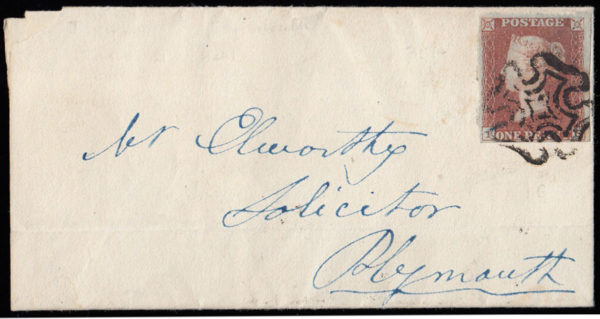 POSTAGE
ONE PENNY
Mr Elworthy
Solicitor
Plymouth